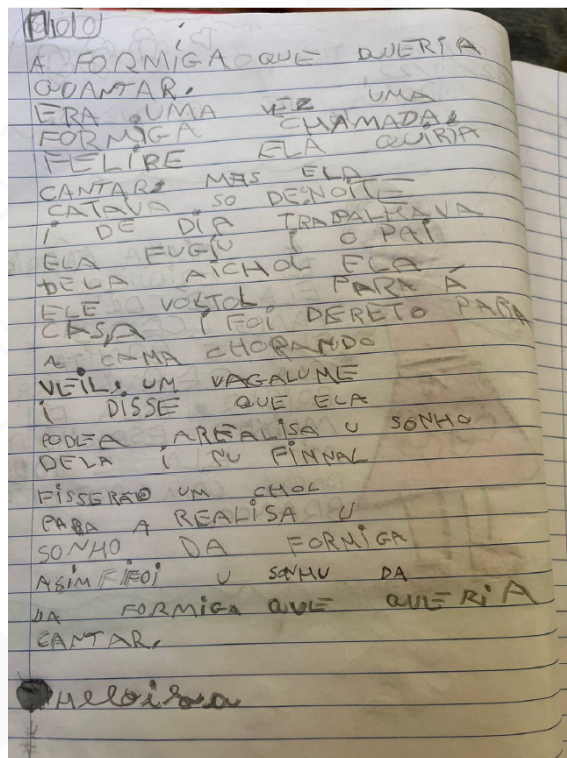 A FORMIGA QUE QUERIA
QUANTAR.
ERA UMA VEZ UMA
FORMIGA CHAMADA.
FELIPE ELA QUIRIA
CANTAR. MAS ELA
CATAVA SO DE NOITE
I DE DIA TRABALHAVA
ELA FUGIU I O PAI
DELA AICHOL ELA
ELE VOLTOL PARA Á
CASA I FOI DERETO PARA
A CAMA CHORANDO
VEIL. UM VAGALUME
I DISSE QUE ELA
PODEA AREALISA U SONHO
DELA I NU FINNAL
FISSERÃO UM CHOL
PARA A REALISA U
SONHO DA FORMIGA
ASIM FIFOI U SONHU DA
DA FORMIGA QUE QUERIA
CANTAR.
Heloisa